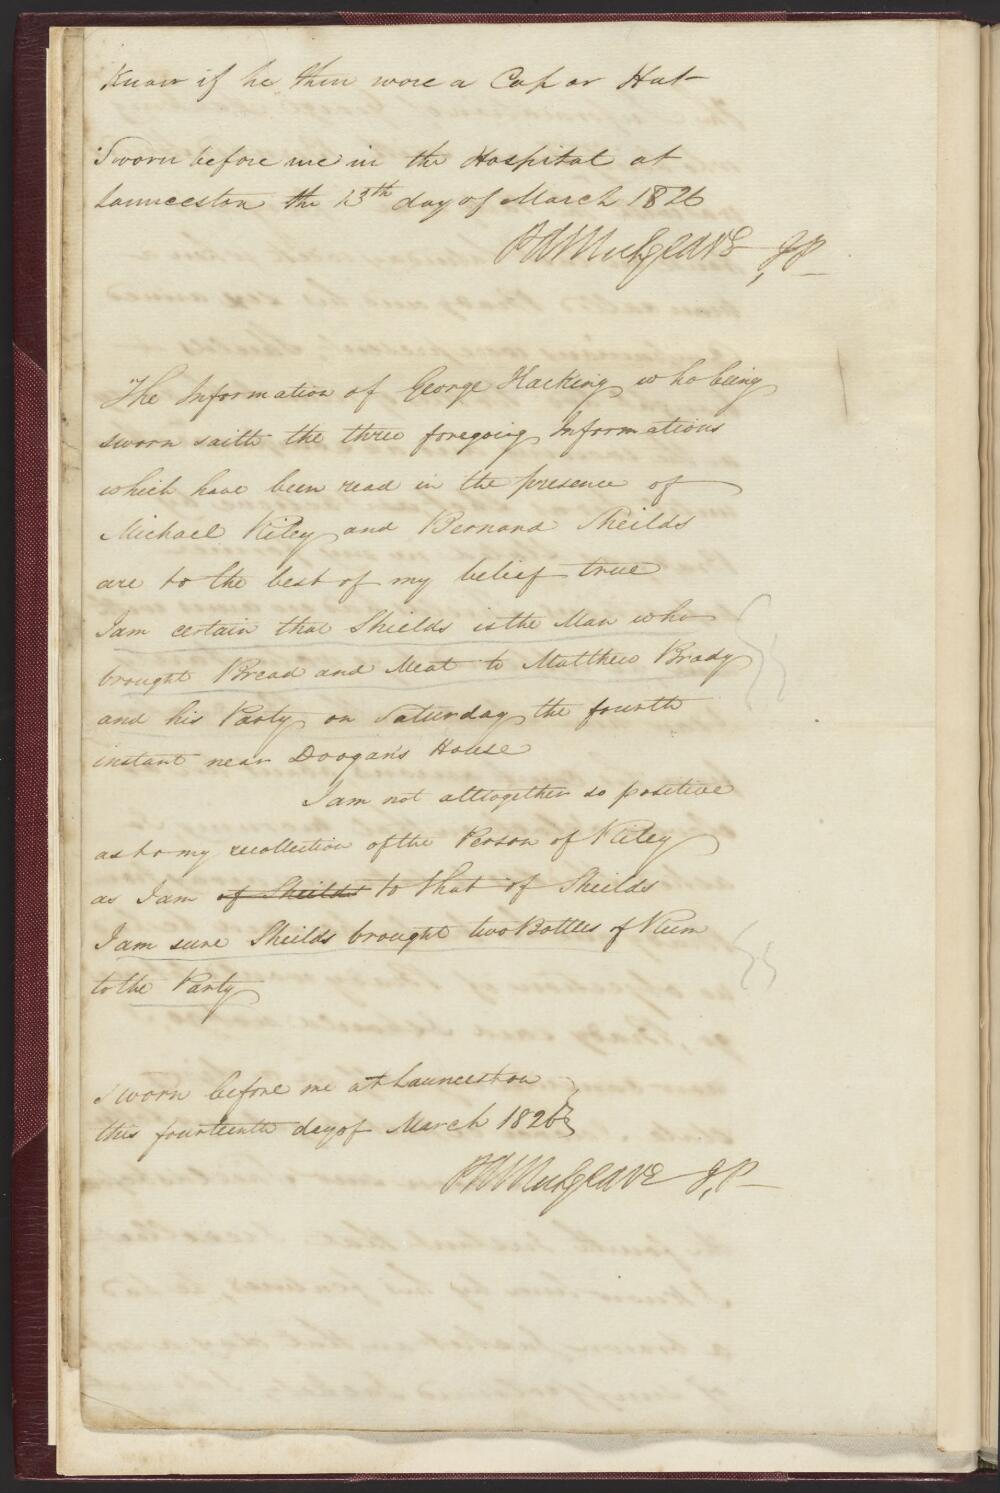 Know if he then wore a Cap or Hat
Sworn before me in the Hospital at
Launceston the 13th day of March 1826
Musgrave JP
The Information of George Hacking who being
sworn saith the three foregoing Informations
which have been read in the presence of
Michael Riley and Bernard Sheilds
are to the best of my belief true
I am certain that Shields is the Man who
brought Bread and Meat to Matthew Brady
and his Party on Saturday the fourth
instant near Doogan's House
I am not alltogether so positive
as to my recollection of the Person of Riley
as I am of Sheilds to that of Sheilds
I am sure Sheilds brought two Bottles of Rum
to the Party
Sworn before me at Launceston
this fourteenth day of March 1826
Musgrave J.P